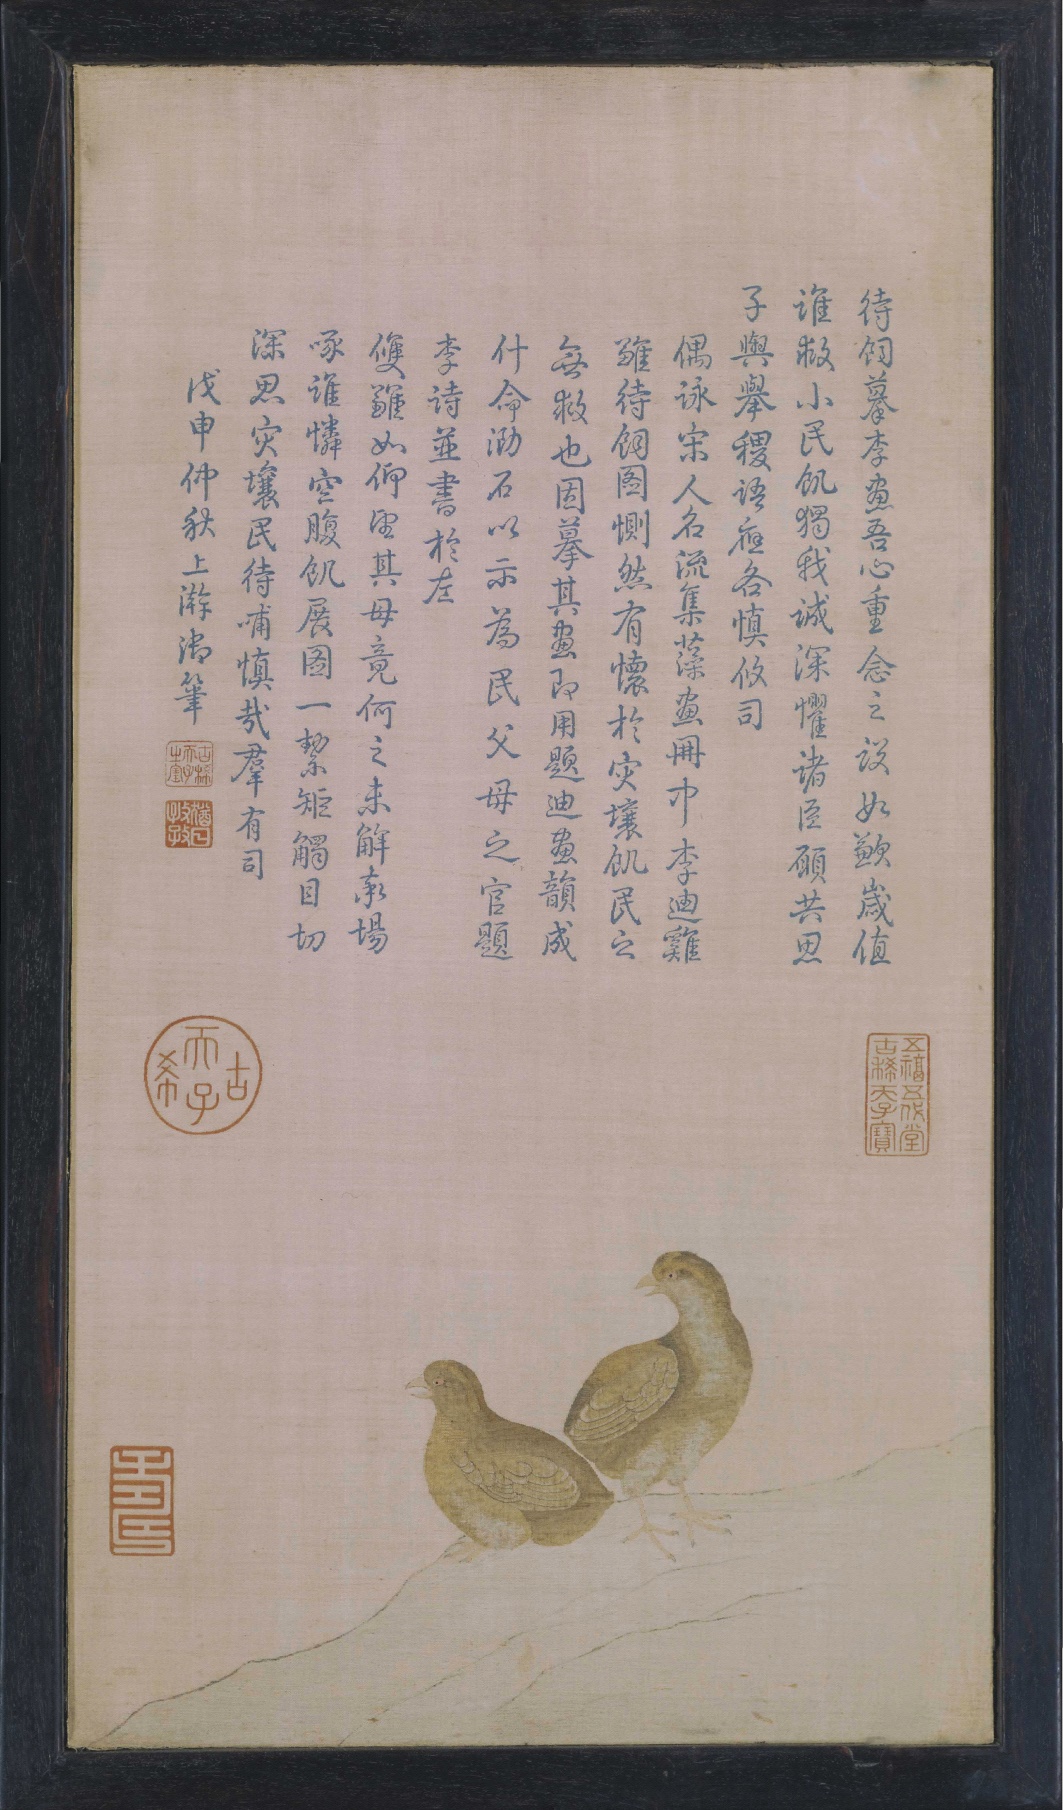 待飼摹李畫吾心重念之設如歉歲值
誰救小民飢獨我誠深懼諸臣願共思
子輿舉稷語應各慎攸司
偶詠宋人名流集藻畫冊中李迪雞
雛待飼图惻然有懷於灾壤飢民之
無救也因摹其畫即用題迪畫韻成
什命泐石以示為民父母之官題
李詩並書於左
雙雛如仰望其母竟何之未解率場
啄誰憐空腹飢展图一絜矩觸目切
深思灾壤民待哺慎哉羣有司
戊申仲秋上澣御筆
古稀天子之寶
猶日孜孜
五福五代堂古稀天子寶
古希天子
壽